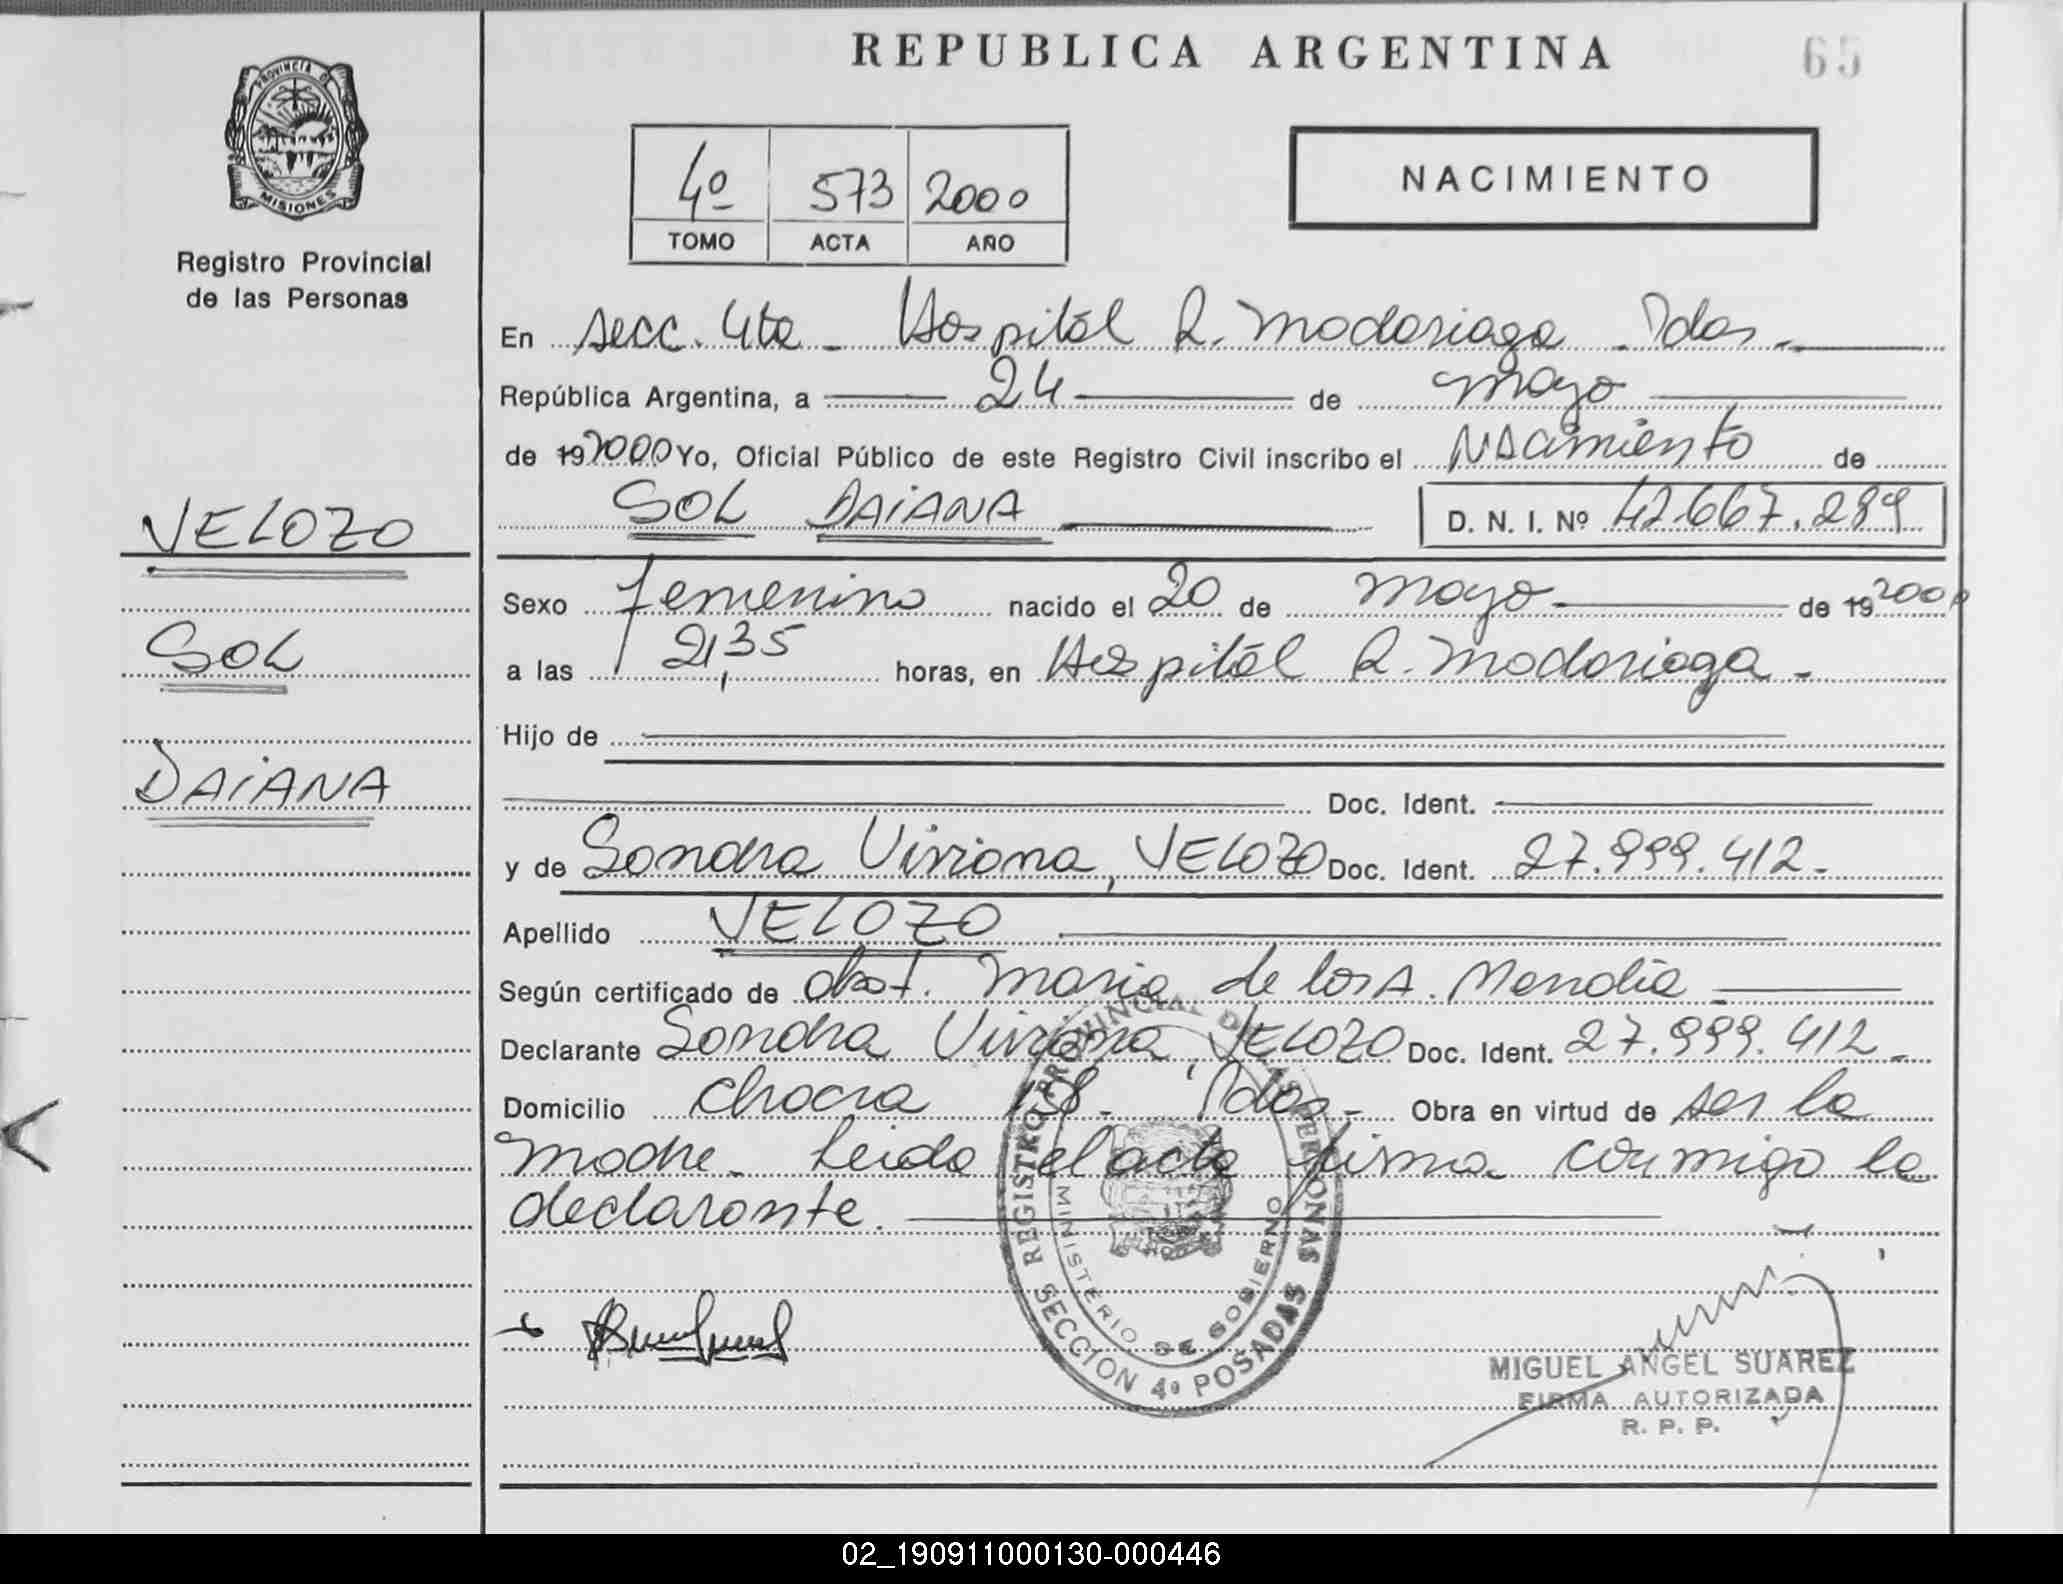 REPUBLICA ARGENTINA
65
PROVINCIA D
MISIONES
Registro Provincial
de las Personas
4º 573 2000
TOMO ACTA AÑO
NACIMIENTO
En Secc. 4ta - Hospital R. Madariaga - Pdas -
República Argentina, a 24 de mayo
de 19 2000 Yo, Oficial Público de este Registro Civil inscribo el Nacimiento de
SOL DAIANA D. N. I. Nº 42.667.289
VELOZO
SOL
DAIANA
Sexo femenino nacido el 20 de mayo de 19 2000
a las 21,35 horas, en Hospital R. Madariaga -
Hijo de
Doc. Ident.
y de Sandra Viviana, VELOZO Doc. Ident. 27.999.412 -
Apellido VELOZO
Según certificado de obst. Maria de los A. Mendia
Declarante Sandra Viviana, VELOZO Doc. Ident. 27.999.412 -
Domicilio chacra 128 - Pdas - Obra en virtud de ser la
madre - Leida el acta firma conmigo la
declarante.
REGISTRO PROVINCIAL DE LAS PERSONAS
MINISTERIO DE GOBIERNO
SECCION 4º POSADAS
MIGUEL ANGEL SUAREZ
FIRMA AUTORIZADA
R. P. P.
02_190911000130-000446